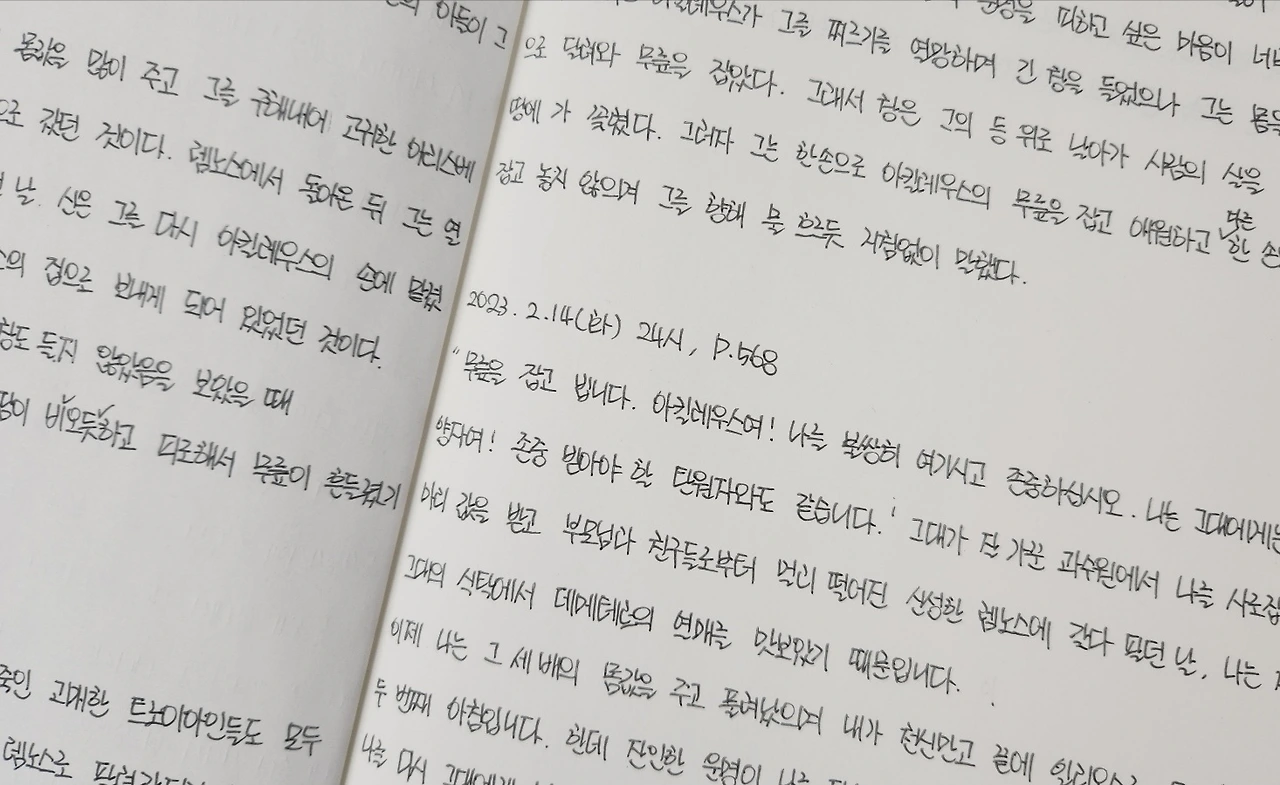 이들이 그
몸값을 많이 주고 그를 구해내어 고귀한 아리스베
으로 갔던 것이다. 렘노스에서 돌아온 뒤 그는 열
날. 신은 그를 다시 아킬레우스의 손에 맡겼
의 집으로 보내게 되어 있었던 것이다.
창도 들지 않았음을 보았을 때
땀이 비오듯하고 피로해서 무릎이 흔들렸기
죽인 고귀한 트로이아인들도 모두
렘노스로
운명을 피하고 싶은 마음이
아킬레우스가 그를 찌르기를 열망하며 긴 창을 들었으나 그는 몸을
으로 달려와 무릎을 잡았다. 그래서 창은 그의 등 위로 날아가 사람의 살을
땅에 가 꽂혔다. 그러자 그는 한손으로 아킬레우스의 무릎을 잡고 애원하고 다른 한 손
잡고 놓지 않으며 그를 향해 물 흐르듯 거침없이 말했다.
2023. 2.14(화) 24시, P.568
"무릎을 잡고 빕니다. 아킬레우스여! 나를 불쌍히 여기시고 존중하십시오. 나는 그대에게는
양자여! 존중 받아야 할 탄원자와도 같습니다. 그대가 잘 가꾼 과수원에서 나를 사로잡
마리 값을 받고 부모님과 친구들로부터 멀리 떨어진 신성한 렘노스에 갖다 팔던 날, 나는
그대의 식탁에서 데메테르의 열매를 맛보았기 때문입니다.
이제 나는 그 세 배의 몸값을 주고 풀려났으며 내가 천신만고 끝에 일리오스로
두 번째 아침입니다. 한데 잔인한 운명이 나를
나를 다시 그대에게